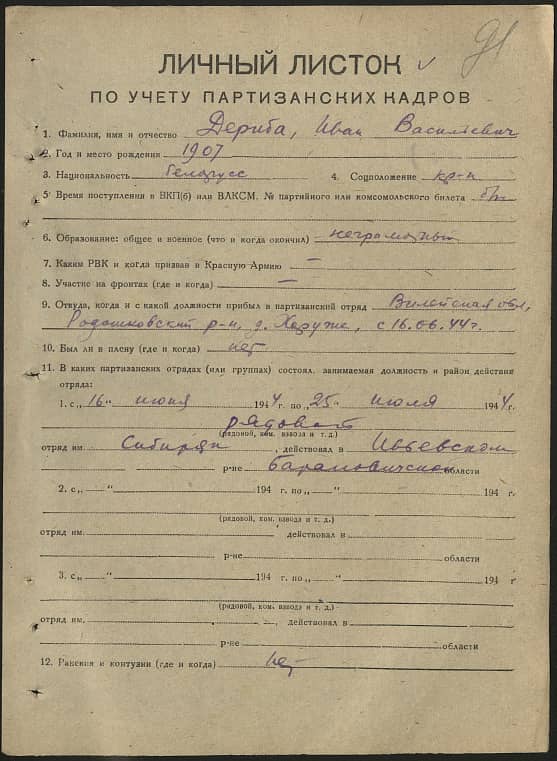 91
ЛИЧНЫЙ ЛИСТОК
ПО УЧЕТУ ПАРТИЗАНСКИХ КАДРОВ
1. Фамилия, имя и отчество Дериба, Иван Васильевич
2. Год и место рождения 1907
3. Национальность белорусс 4. Соцположение кр-н
5. Время поступления в ВКП(б) или ВЛКСМ, № партийного или комсомольского билета б/п
6. Образование: общее и военное (что и когда окончил) неграмотный
7. Каким РВК и когда призван в Красную Армию —
8. Участие на фронтах (где и когда) —
9. Откуда, когда и с какой должности прибыл в партизанский отряд Вилейская обл,
Радошковский р-н, д. Харужа, с 16.06.44г.
10. Был ли в плену (где и когда) нет
11. В каких партизанских отрадах (или группах) состоял, занимаемая должность и район действия
отряда:
1. с „16" июня 1944 г. по „25" июля 1944 г.
рядовой
(рядовой, ком. взвода и т. д.)
отряд им. Сибиряк, действовал в Ивьевском
р-не Барановичской области
2. с „ " 194 г. по „ " 194 г.
(рядовой, ком. взвода и т. д.)
отряд им. действовал в
р-не области
3. с „ " 194 г. по „ " 194 г
(рядовой, ком. взвода и т. д.)
отряд им. , действовал в
р-не области
12. Ранения и контузии (где и когда) нет